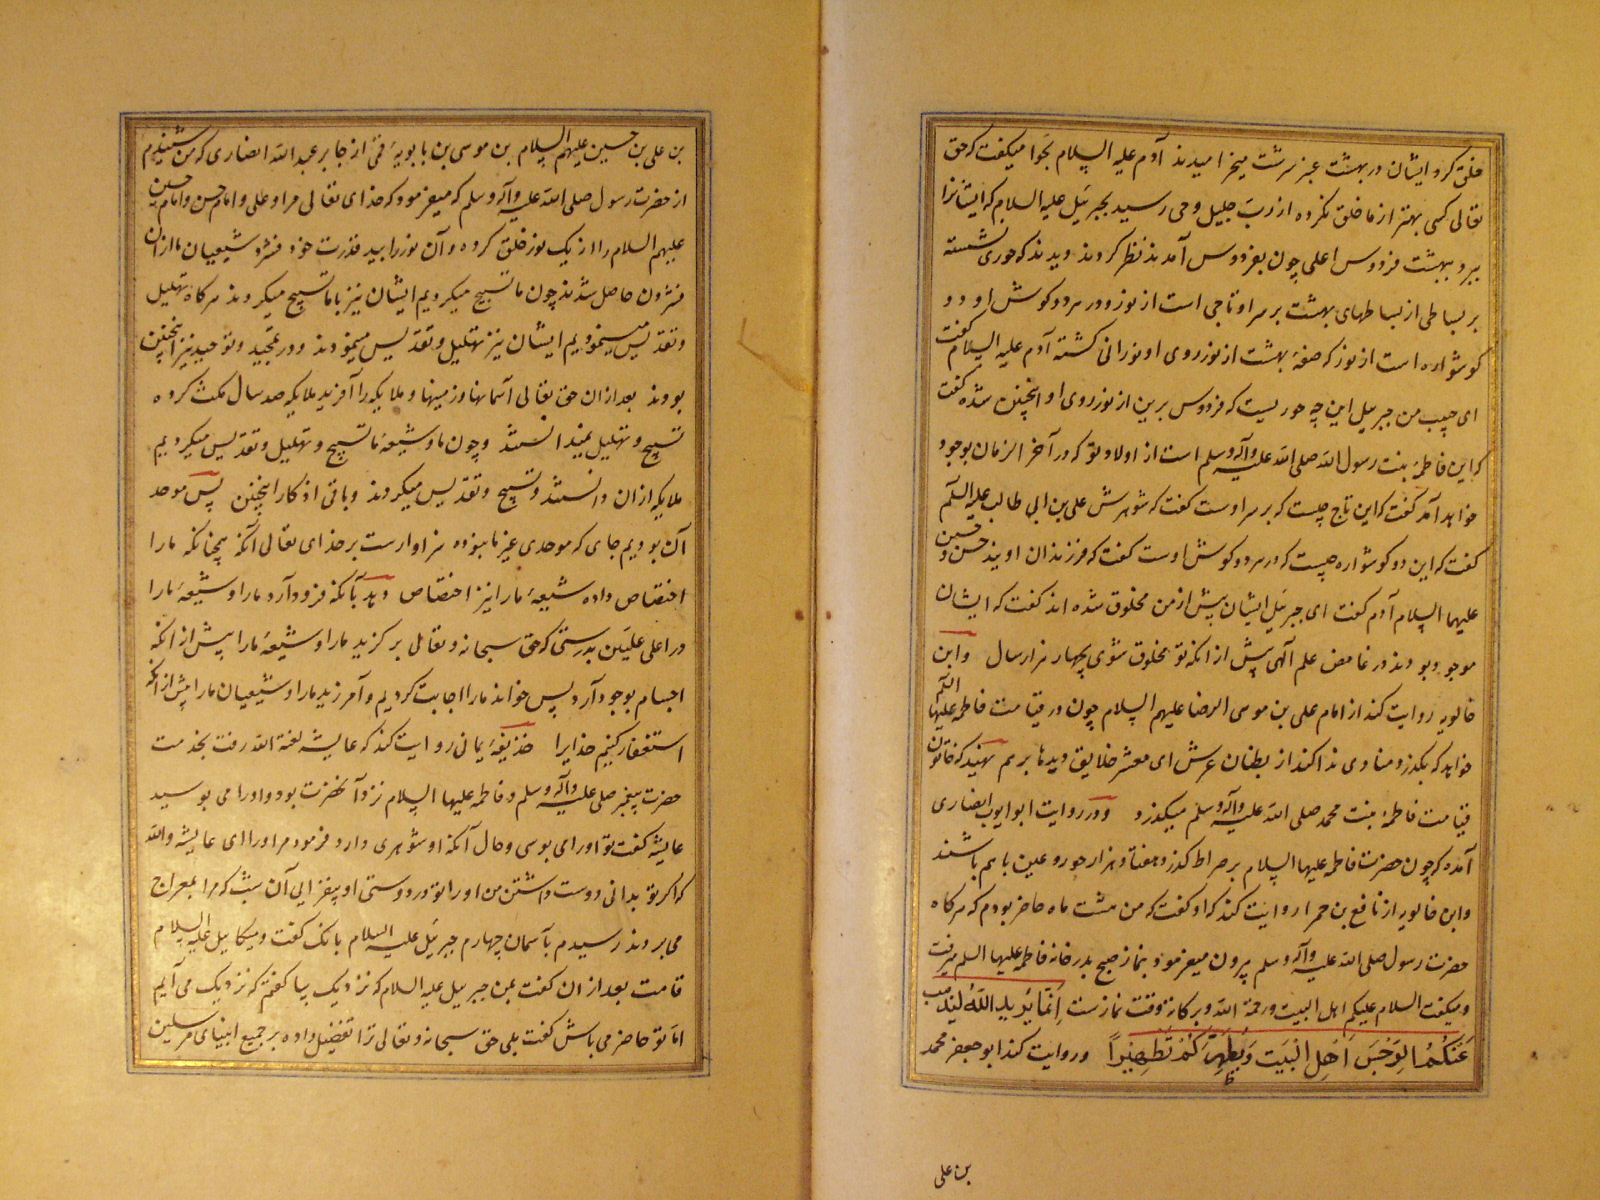 خلق کرد و ایشان در بهشت عنبر سرشت میخرامیدند آدم علیه السلام بحوا میگفت که حق
تعالی کسی بهتر از ما خلق نکرده از رب جلیل وحی رسید بجبرئیل علیه السلام که ایشانرا
ببرد ببهشت فردوس اعلی چون بفردوس آمدند نظر کردند دیدند که حوری نشسته
بر بساطی از بساطهای بهشت بر سر او تاجی است از نور و در هر دو کوش او دو
کوشواره است از نور که صفهٔ بهشت از نور روی او نورانی کشته آدم علیه السلام کفت
ای حبیب من جبرئیل این چه حوریست که فردوس برین از نور روی او اینچنین شده کفت
که این فاطمهٔ بنت رسول الله صلی الله علیه وآله وسلم است از اولاد تو که در آخر الزمان بوجود
خواهد آمد کفت که این تاج چیست که بر سر اوست کفت که شوهرش علی بن ابی طالب علیه السلم
کفت که این دو کوشواره چیست که در هر دو کوش اوست کفت که فرزندان اویند حسن و حسین
علیهما السلام آدم کفت ای جبرئیل ایشان پیش از من مخلوق شده اند کفت که ایشان
موجود بودند در غامض علم الهی پیش از انکه تو مخلوق شوی بچهار هزار سال وابن
خالویه روایت کند از امام علی بن موسی الرضا علیهم السلام چون در قیامت فاطمه علیها السلم
خواهد که بگذرد منادی ندا کند از بطنان عرش ای معشر خلایق دیدها برهم نهید که خاتون
قیامت فاطمهٔ بنت محمد صلی الله علیه وآله وسلم میکذرد ودر روایت ابو ایوب انصاری
آمده که چون حضرت فاطمه علیها السلام بر صراط کذرد هفتاد هزار حور و عین با هم باشند
وابن خالویه از نافع بن حمرا روایت کند که او کفت که من هشت ماه حاضر بودم که هرکاه
حضرت رسول صلی الله علیه وآله وسلم بیرون میفرمود بنماز صبح بدر خانه فاطمه علیها السلم میرفت
و میکفت السلام علیکم اهل البیت ورحمة الله وبرکاته وقت نمازست اِنَّمَا یُرِیدُ اللهُ لِیُذهِبَ
عَنکُمُ الرِّجسَ اَهلَ البَیتِ وَیُطَهِّرَکُم تَطهِیراً و روایت کند ابو جعفر محمد
بن علی
بن علی بن حسین علیهم السلام بن موسی بن بابویهٔ قمی از جابر عبد الله انصاری که من شنیدم
از حضرت رسول صلی الله علیه وآله وسلم که میفرمود که خدای تعالی مرا و علی و امام حسن و امام حسین
علیهم السلام را از یک نور خلق کرد و آن نور را بید قدرت خود فشرد شیعیان ما از ان
فشردن حاصل شدند چون ما تسبیح میکردیم ایشان نیز با ما تسبیح میکردند هرکاه تهلیل
و تقدیس مینمودیم ایشان نیز تهلیل و تقدیس مینمودند و در تمجید و توحید نیز اینچنین
بودند بعد از ان حق تعالی آسمانها و زمینها و ملایکه را آفرید ملایکه صد سال مکث کرده
تسبیح و تهلیل نمیدانستند و چون ما و شیعهٔ ما تسبیح و تهلیل و تقدیس میکردیم
ملایکه از ان دانستند و تسبیح و تقدیس میکردند و باقی اذکار اینچنین پس موحد
آن بودیم جای که موحدی غیر ما نبوده سزاوارست بر خدای تعالی آنکه همچنانکه ما را
اختصاص داده شیعهٔ ما را نیز اختصاص دهد بآنکه فرود آرد ما را و شیعهٔ ما را
در اعلی علیین بدرستی که حق سبحانه و تعالی برکزید ما را و شیعهٔ ما را پیش از انکه
اجسام بوجود آرد پس خواند ما را اجابت کردیم و آمرزید ما را و شیعیان ما را پیش از انکه
استغفار کنیم خدایرا حذیفهٔ یمانی روایت کند که عایشه لعنة الله رفت بخدمت
حضرت پیغمبر صلی علیه وآله وسلم و فاطمه علیها السلام نزد آنحضرت بود و او را می بوسید
عایشه کفت تو او را می بوسی و حال آنکه او شوهری دارد فرمود مر او را ای عایشه والله
که اکر تو بدانی دوست داشتن من او را تو در دوستی او بیفزایی آن شب که مرا بمعراج
می بردند رسیدم بآسمان چهارم جبرئیل علیه السلام بانک کفت و میکاییل علیه السلام
قامت بعد از ان کفت بمن جبرییل علیه السلام که نزدیک بیا کفتم که نزدیک می آیم
اما تو حاضر می باش کفت بلی حق سبحانه و تعالی ترا تفضیل داده بر جمیع انبیای مرسلین